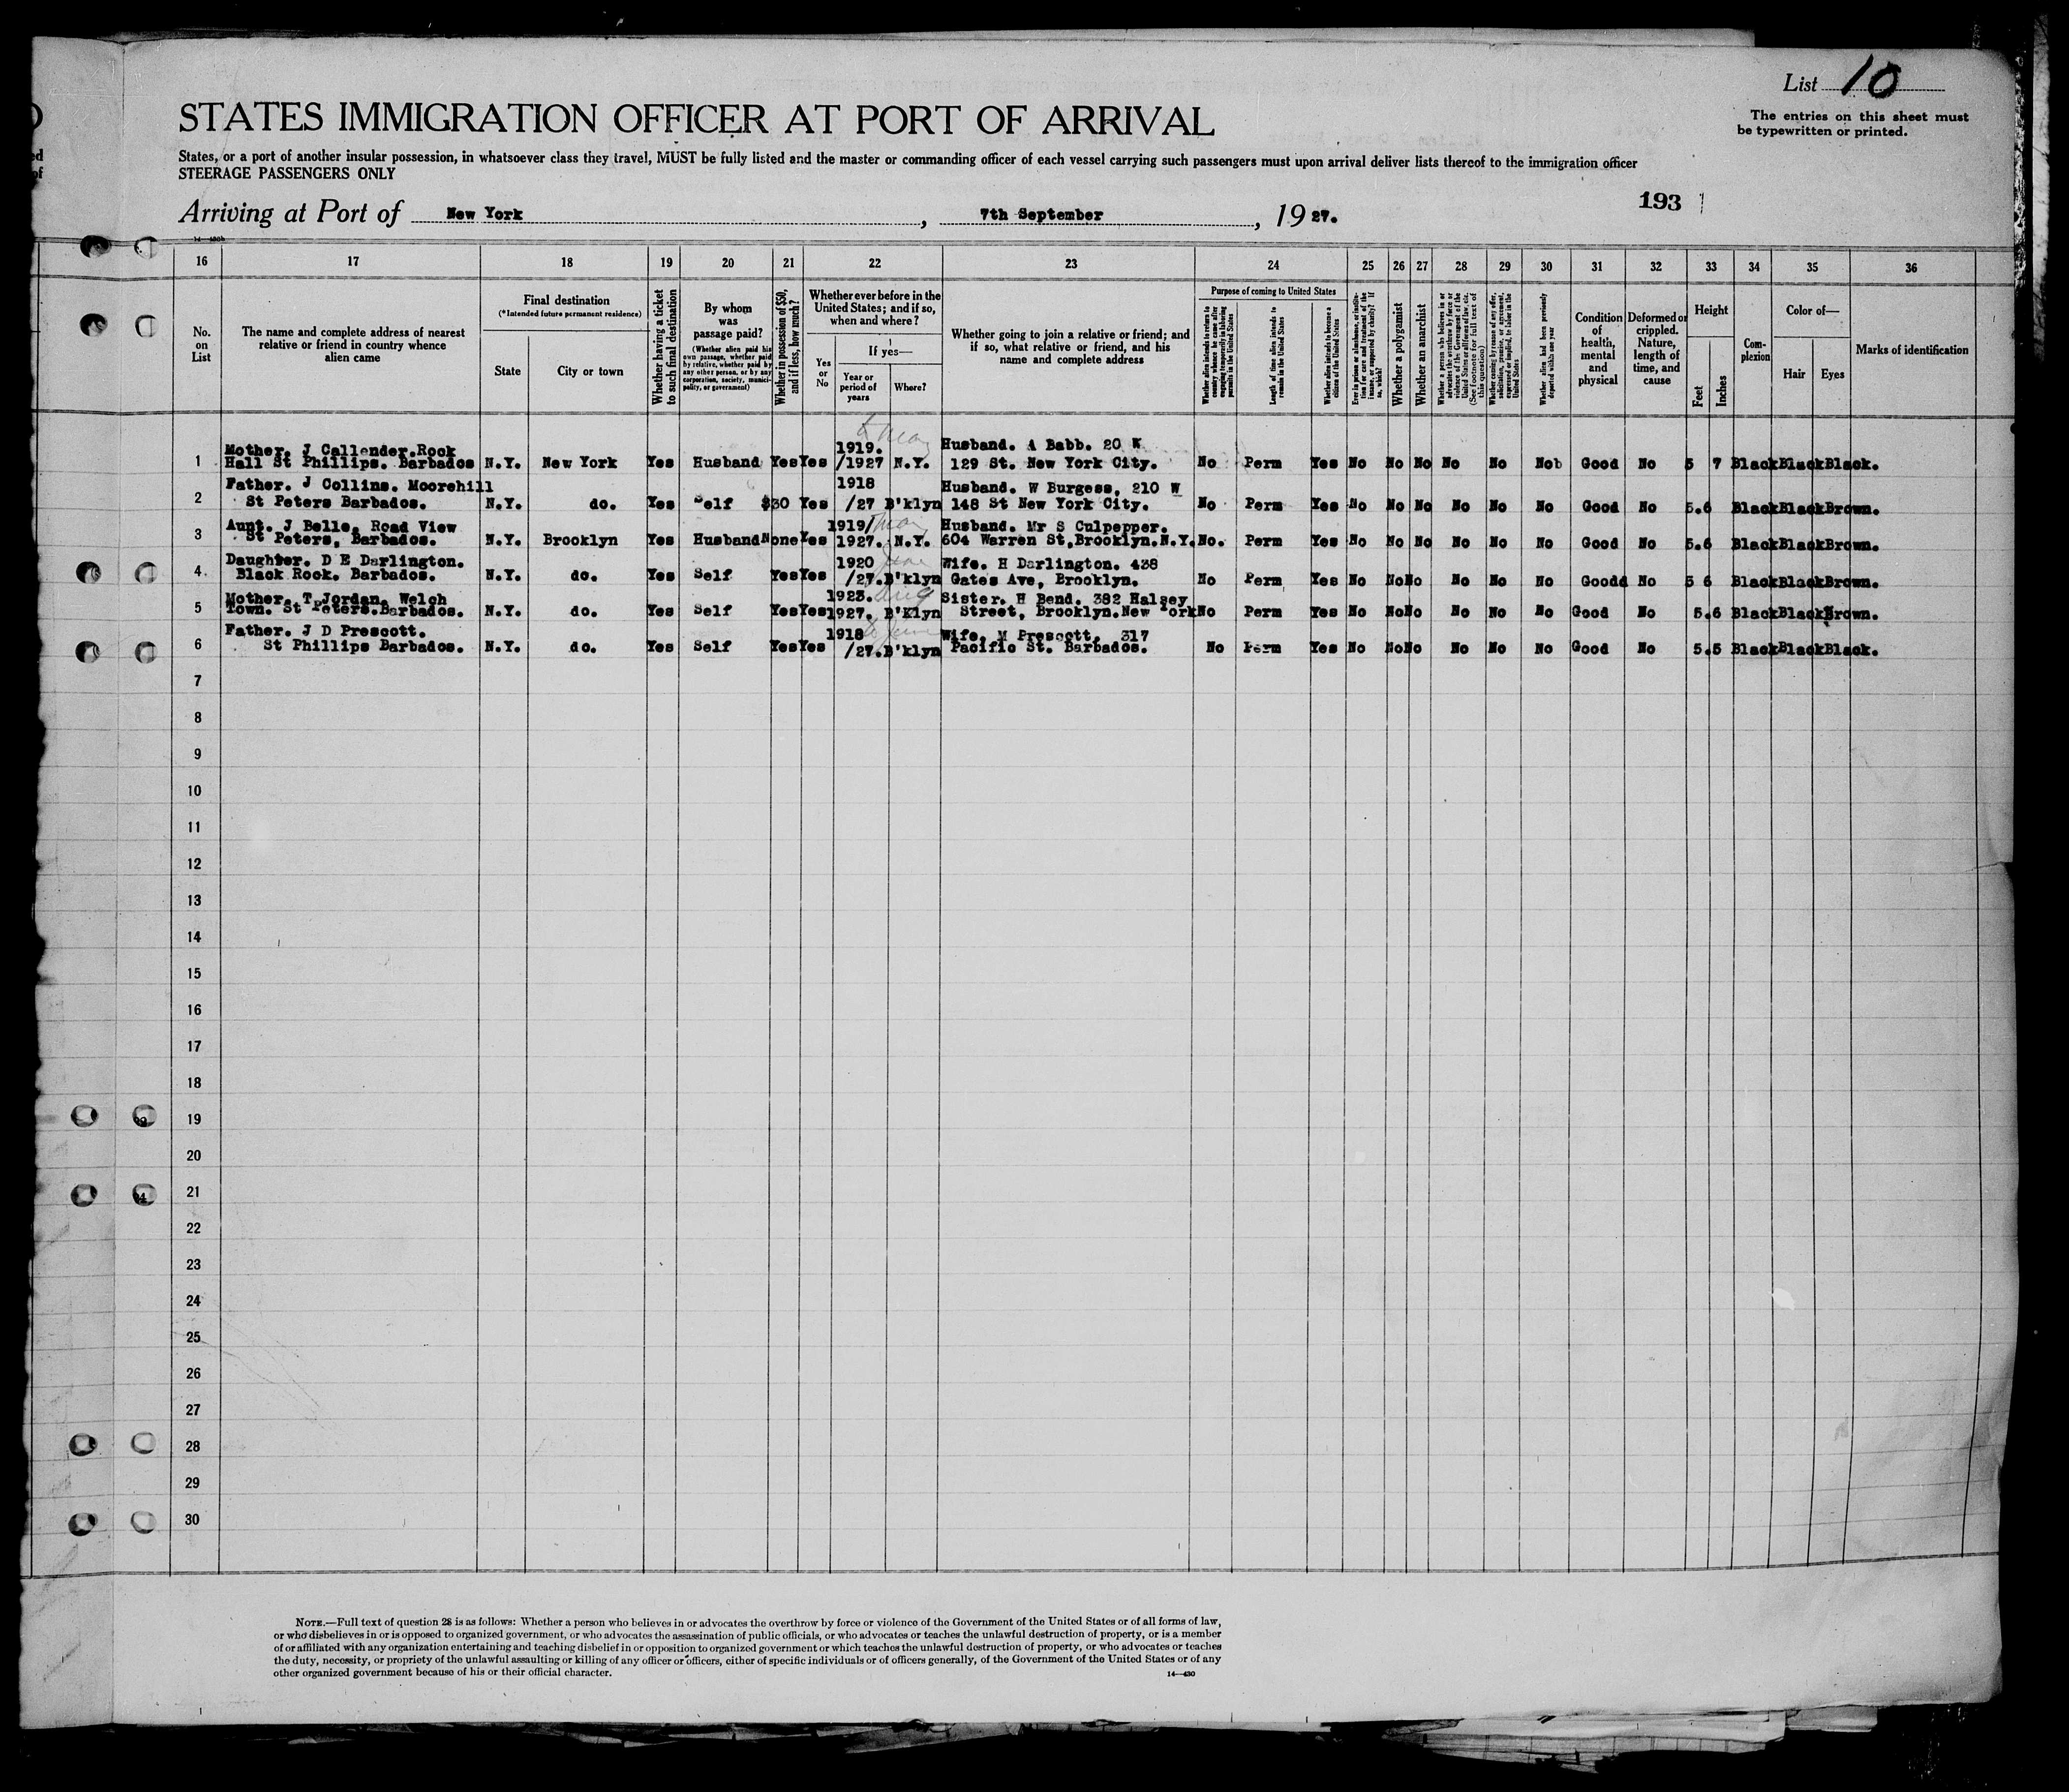 List 10
The entries on this sheet must
be typewritten or printed.
STATES IMMIGRATION OFFICER AT PORT OF ARRIVAL
States, or a port of another insular possession, in whatsoever class they travel, MUST be fully listed and the master or commanding officer of each vessel carrying such passengers must upon arrival deliver lists thereof to the immigration officer
STEERAGE PASSENGERS ONLY
193
Arriving at Port of New York, 7th September, 1927.
16 17 18 19 20 21 22 23 24 25 26 27 28 29 30 31 32 33 34 35 36
No. on List
The name and complete address of nearest relative or friend in country whence alien came
Final destination
(*Intended future permanent residence)
State
City or town
Whether having a ticket to such final destination
By whom was passage paid?
(Whether alien paid his own passage, whether paid by relative, whether paid by any other person, or by any corporation, society, municipality, or government)
Whether in possession of $50, and if less, how much?
Whether ever before in the United States; and if so, when and where?
Yes or No
If yes—
Year or period of years
Where?
Whether going to join a relative or friend; and if so, what relative or friend, and his name and complete address
Purpose of coming to United States
Length of time alien intends to remain in the United States
Whether alien intends to become a citizen of the United States
Whether a polygamist
Whether an anarchist
Whether alien had been previously deported within one year
Condition of health, mental and physical
Deformed or crippled. Nature, length of time, and cause
Height
Feet
Inches
Complexion
Color of—
Hair
Eyes
Marks of identification
Mother. J Callender.Rock 1919. Husband. A Babb. 20 W
1 Hall St Phillips. Barbados N.Y. New York Yes Husband Yes Yes /1927 N.Y. 129 St. New York City. No Perm Yes No No No No No No Good No 5 7 Black Black Black.
Father. J Collins. Moorehill 1918 Husband. W Burgess, 210 W
2 St Peters Barbados. N.Y. do. Yes Self $30 Yes /27 B'klyn 148 St New York City. No Perm Yes No No No No No No Good No 5.6 Black Black Brown.
Aunt. J Belle. Road View 1919/ Husband. Mr S Culpepper.
3 St Peters, Barbados. N.Y. Brooklyn Yes Husband None Yes 1927. N.Y. 604 Warren St.Brooklyn.N.Y. No. Perm Yes No No No No No No Good No 5.6 Black Black Brown.
Daughter. D E Darlington. 1920 Wife. H Darlington. 438
4 Black Rock. Barbados. N.Y. do. Yes Self Yes Yes /27. B'klyn Gates Ave, Brooklyn. No Perm Yes No No No No No No Goodd No 5 6 Black Black Brown.
Mother. T Jordan. Welch 1923. Aug Sister. H Bend. 382 Halsey
5 Town. St Peters.Barbados. N.Y. do. Yes Self Yes Yes 1927. B'Klyn Street, Brooklyn.New York No Perm Yes No No No No No No Good No 5.6 Black Black Brown.
Father. J D Prescott. 1918 Wife. M Prescott. 317
6 St Phillips Barbados. N.Y. do. Yes Self Yes Yes /27. B'klyn Pacific St. Barbados. No Perm Yes No No No No No No Good No 5.5 Black Black Black.
7
8
9
10
11
12
13
14
15
16
17
18
19
20
21
22
23
24
25
26
27
28
29
30
NOTE.—Full text of question 28 is as follows: Whether a person who believes in or advocates the overthrow by force or violence of the Government of the United States or of all forms of law,
or who disbelieves in or is opposed to organized government, or who advocates the assassination of public officials, or who advocates or teaches the unlawful destruction of property, or is a member
of or affiliated with any organization entertaining and teaching disbelief in or opposition to organized government or which teaches the unlawful destruction of property, or who advocates or teaches
the duty, necessity, or propriety of the unlawful assaulting or killing of any officer or officers, either of specific individuals or of officers generally, of the Government of the United States or of any
other organized government because of his or their official character.
14—430